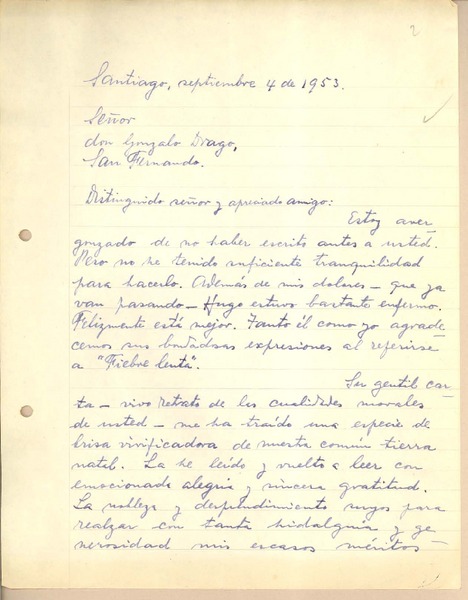 2
Santiago, septiembre 4 de 1953.
Señor
don Gonzalo Drago,
San Fernando.
Distinguido señor y apreciado amigo:
Estoy aver-
gonzado de no haber escrito antes a usted.
Pero no he tenido suficiente tranquilidad
para hacerlo. Además de mis dolores - que ya
van pasando - Hugo estuvo bastante enfermo.
Felizmente está mejor. Tanto él como yo agrade-
cemos sus bondadosas expresiones al referirse
a "Fiebre lenta".
Su gentil car-
ta - vivo retrato de las cualidades morales
de usted - me ha traído una especie de
brisa vivificadora de nuestra común tierra
natal. La he leído y vuelto a leer con
emocionada alegría y sincera gratitud.
La nobleza y desprendimiento suyos para
realzar con tanta hidalguía y ge-
nerosidad mis escasos méritos -